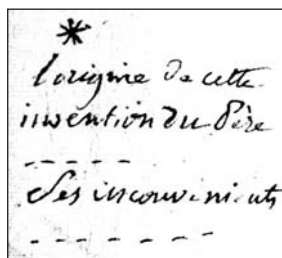 *
l'origine de cette
invention du Père
- - - - -
Ses inconvenients
- - - - - - -